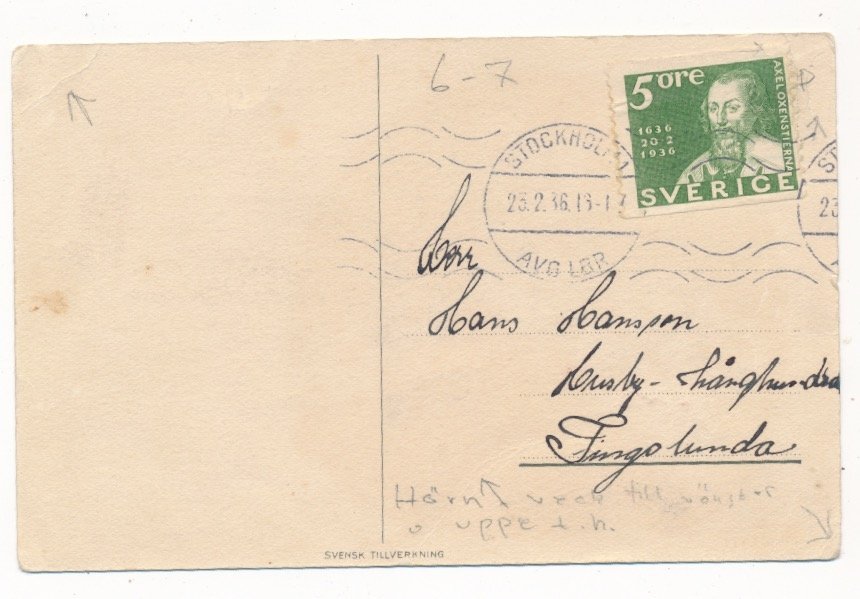 6-7
5 öre
AXEL OXENSTIERNA
1636
20 2
1936
SVERIGE
STOCKHOLM
23.2.36.16-17
AVG LBR
STO
23
Herr
Hans Hansson
Husby-Långhundra
Tingslunda
Hörn veck till vänster
o uppe t.h.
SVENSK TILLVERKNING